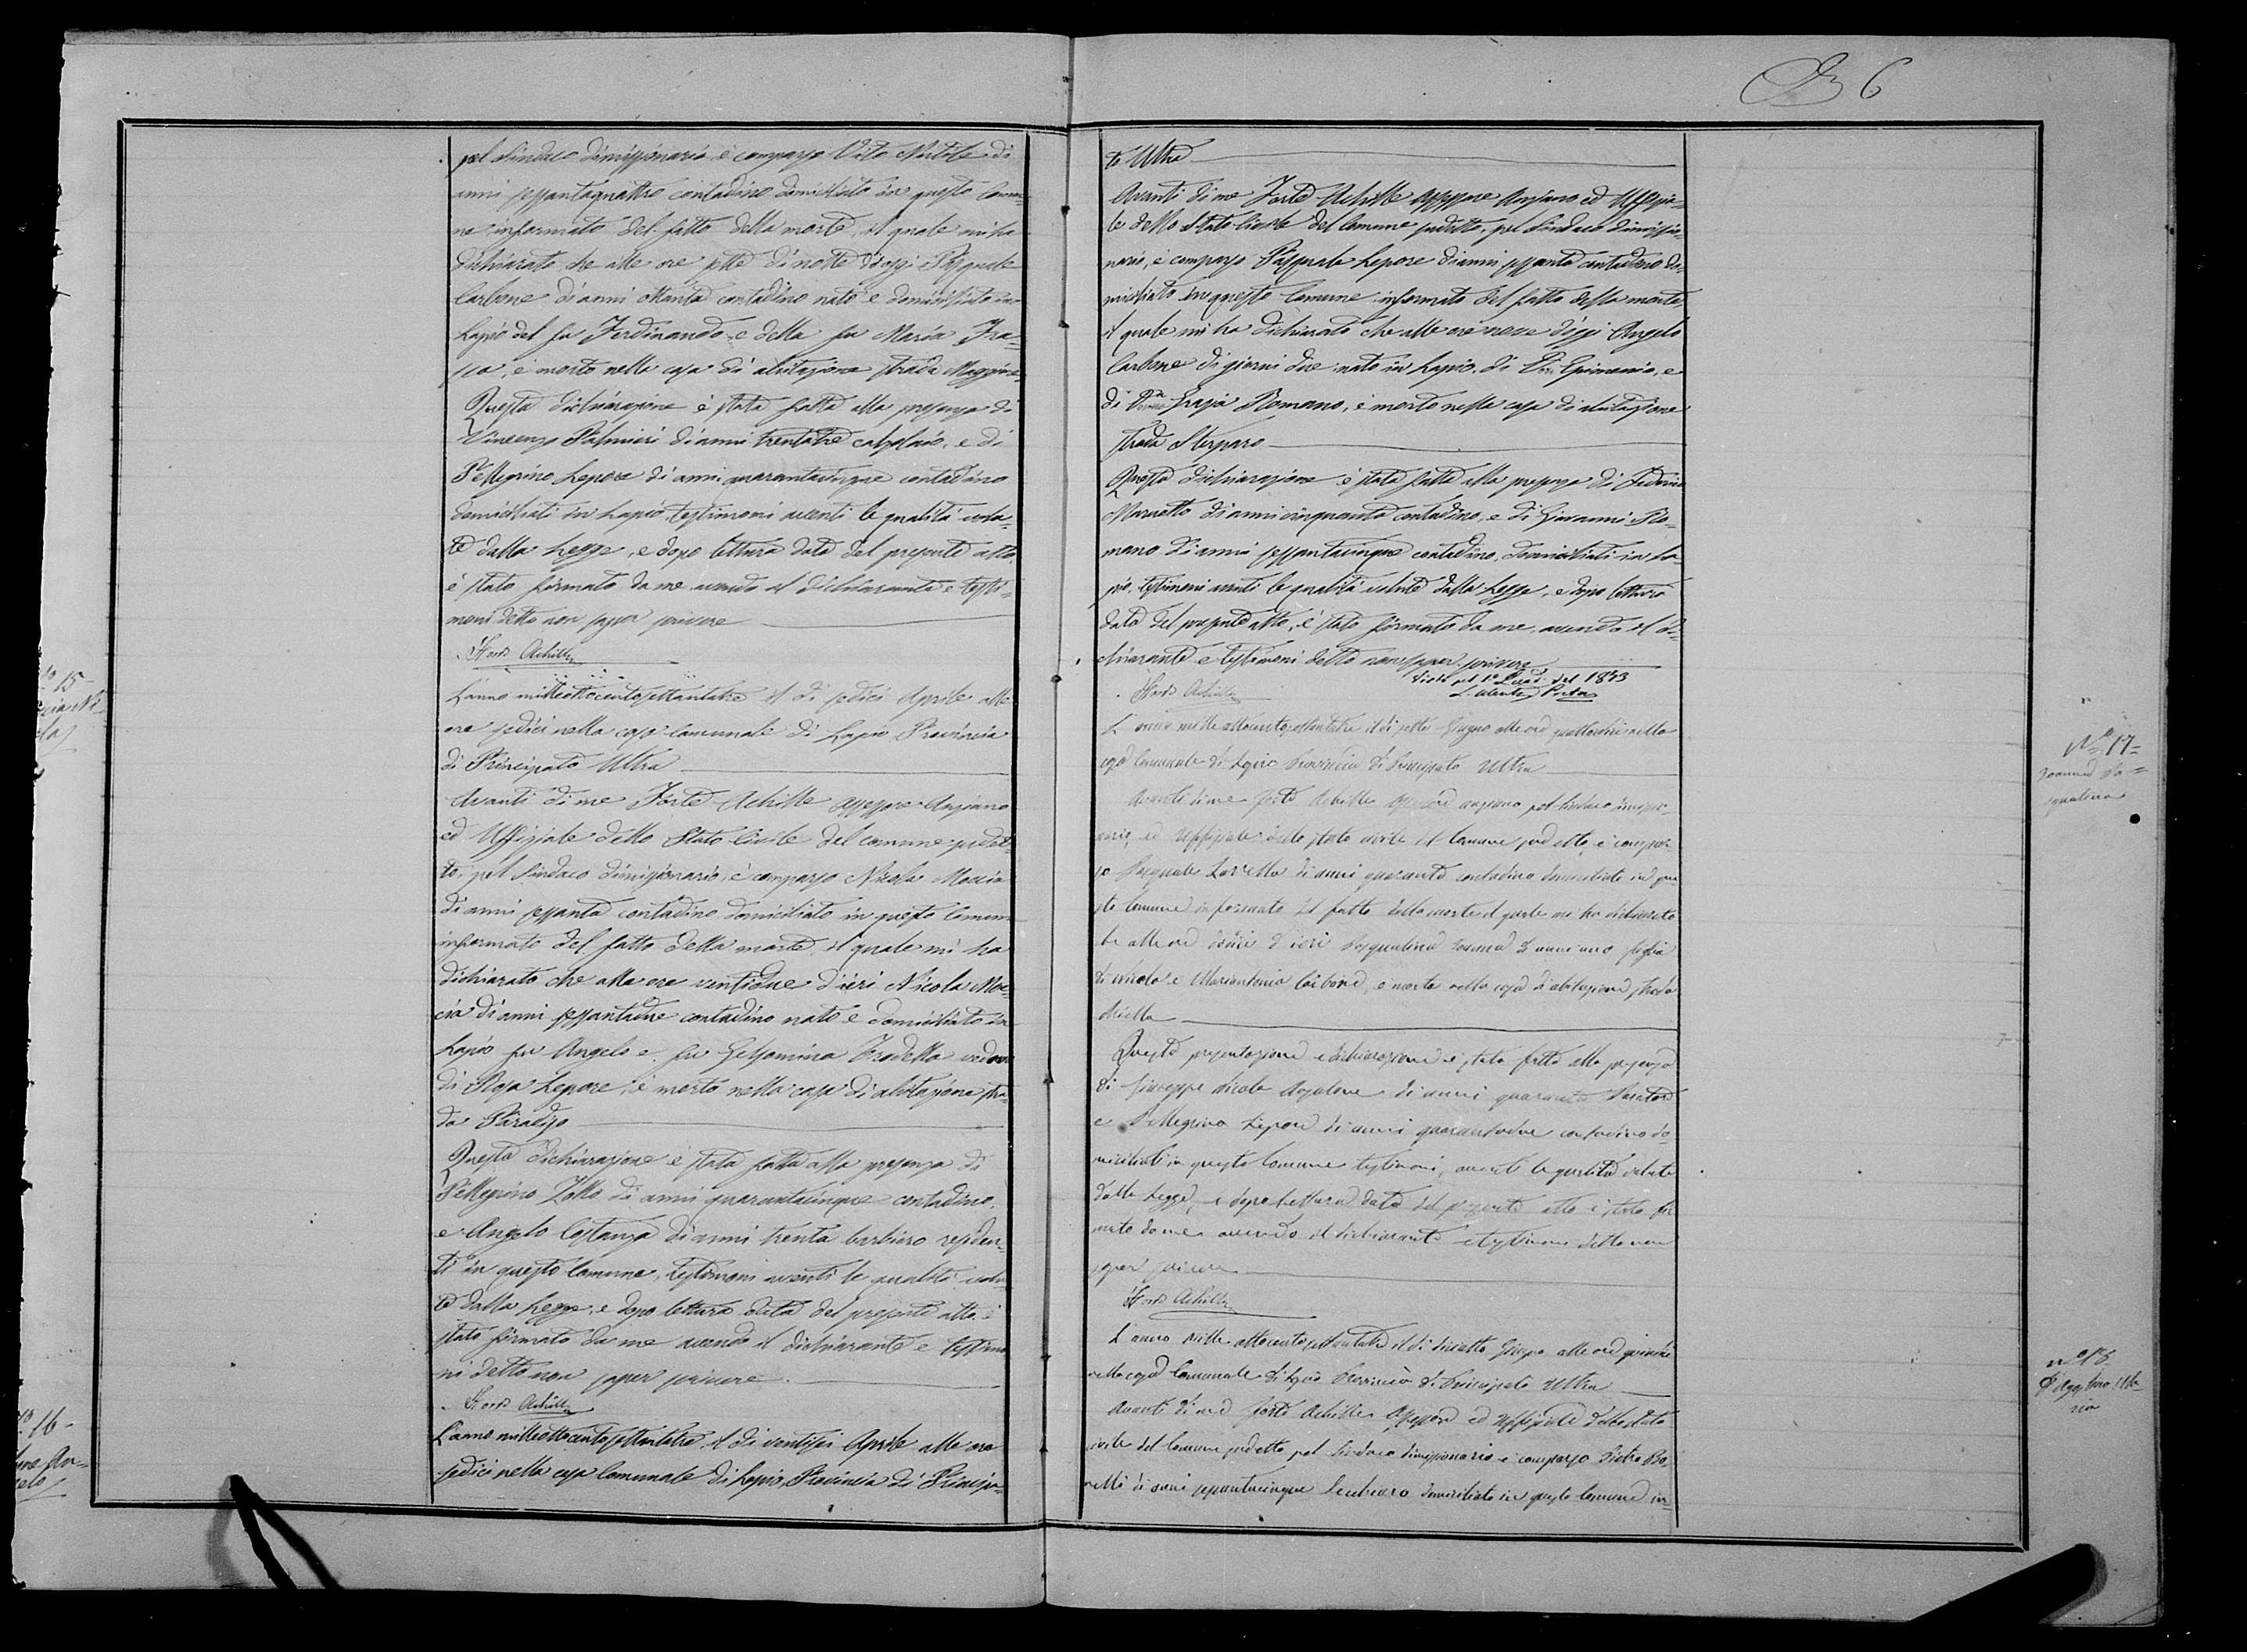 6
pel Sindaco dimissionario è comparso Vito Nutile di
anni sessantaquattro contadino domiciliato in questo Comu=
ne informato del fatto della morte, il quale mi ha
dichiarato, che alle ore sette di notte d'oggi Pasquale
Carbone di anni ottanta contadino nato e domiciliato in
Lapio del fu Ferdinando e della fu Maria Fra=
sca, è morto nella casa di abitazione strada Maggiore
Questa dichiarazione è stata fatta alla presenza di
Vincenzo Palmieri di anni trentatre calzolaio, e di
Pellegrino Lepore di anni quarantacinque contadino
domiciliati in Lapio, testimoni aventi le qualità volu=
te dalla Legge, e dopo lettura data del presente atto,
è stato firmato da me avendo il dichiarante e testi=
moni detto non saper scrivere
Forte Achille
No 15
L'anno milleottocentosettantatre il dì sedici Aprile alle
ore sedici nella casa Comunale di Lapio Provincia
di Principato Ultra
Avanti di me Forte Achille assessore Anziano
ed Uffiziale dello Stato Civile del comune sudet=
to, pel Sindaco dimissionario, è comparso Nicola Moccia
di anni sessanta contadino domiciliato in questo Comune
informato del fatto della morte, il quale mi ha
dichiarato che alle ore ventidue d'ieri Nicola Moc=
cia di anni sessantadue contadino nato e domiciliato in
Lapio fu Angelo e fu Gelsomina Trodella vedovo
di Rosa Lepore, è morto nella casa di abitazione stra=
da Paradiso
Questa dichiarazione è stata fatta alla presenza di
Pellegrino Zollo di anni quarantacinque contadino,
e Angelo Costanza di anni trenta barbiero residen=
ti in questo Comune, testimoni aventi le qualità volu=
te dalla Legge, e dopo lettura data del presente atto è
stato firmato da me avendo il dichiarante e testimo
ni detto non saper scrivere.
Forte Achille
16
L'anno milleottocentosettantatre, il dì ventisei Aprile alle ore
sedici nella casa Comunale di Lapio, Provincia di Principa=
to Ultra
Avanti di me Forte Achille assessore Anziano ed Uffizia=
le dello Stato Civile del Comune sudetto, pel Sindaco dimissio=
nario, è comparso Pasquale Lepore di anni sessanta contadino do=
miciliato in questo Comune informato del fatto della morte,
il quale mi ha dichiarato che alle ore nove d'oggi Angelo
Carbone di giorni due nato in Lapio, di Epimenio, e
di Grazia Romano, è morto nella casa di abitazione
strada Sterparo
Questa dichiarazione è stata fatta alla presenza di Federico
di anni cinquanta contadino, e di Giovanni Ro=
mano di anni sessantacinque contadino, domiciliati in La=
pio, testimoni aventi le qualità volute dalla Legge, e dopo lettura
data del presente atto, è stato firmato da me, avendo il di=
chiarante e testimoni detto non saper scrivere
Visto pel 1° Quad. del 1873
Il Pretore
Forte Achille
No 17=
L'anno mille ottocento settantatre il dì sette Giugno alle ore quattordici nella
casa Comunale di Lapio Provincia di Principato Ultra
Avanti di me Forte Achille assessore anziano pel Sindaco dimissio=
nario, ed Uffiziale dello stato civile del Comune sudetto, è compar
so Pasquale di anni quaranta contadino domiciliato in que
sto Comune informato del fatto della morte il quale mi ha dichiarato
che alle ore dodici d'ieri Pasqualina di anni uno figlia
di Nicola e Mariantonia Carbone, è morta nella casa di abitazione strada
Questa presentazione e dichiarazione è stata fatta alla presenza
di Giuseppe Nicola di anni quaranta
e Pellegrino Lepore di anni quarantadue contadino do
miciliati in questo Comune testimoni, aventi le qualità volute
dalla Legge, e dopo lettura data del presente atto è stato fir
mato da me avendo il dichiarante e testimoni detto non
saper scrivere
Forte Achille
No 18
L'anno mille ottocento settantatre il dì diciotto Giugno alle ore quindici
nella casa Comunale di Lapio Provincia di Principato Ultra
D'Agostino Ma=
ria
Avanti di me Forte Achille Assessore ed Uffiziale dello stato
civile del Comune sudetto pel Sindaco dimissionario è comparso Pietro
di anni sessantacinque domiciliato in questo Comune in=